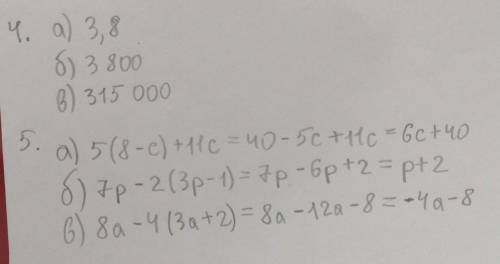 4. а) 3,8
б) 3 800
в) 315 000
5. а) 5(8-c)+11c=40-5c+11c=6c+40
б) 7p-2(3p-1)=7p-6p+2=p+2
в) 8a-4(3a+2)=8a-12a-8=-4a-8